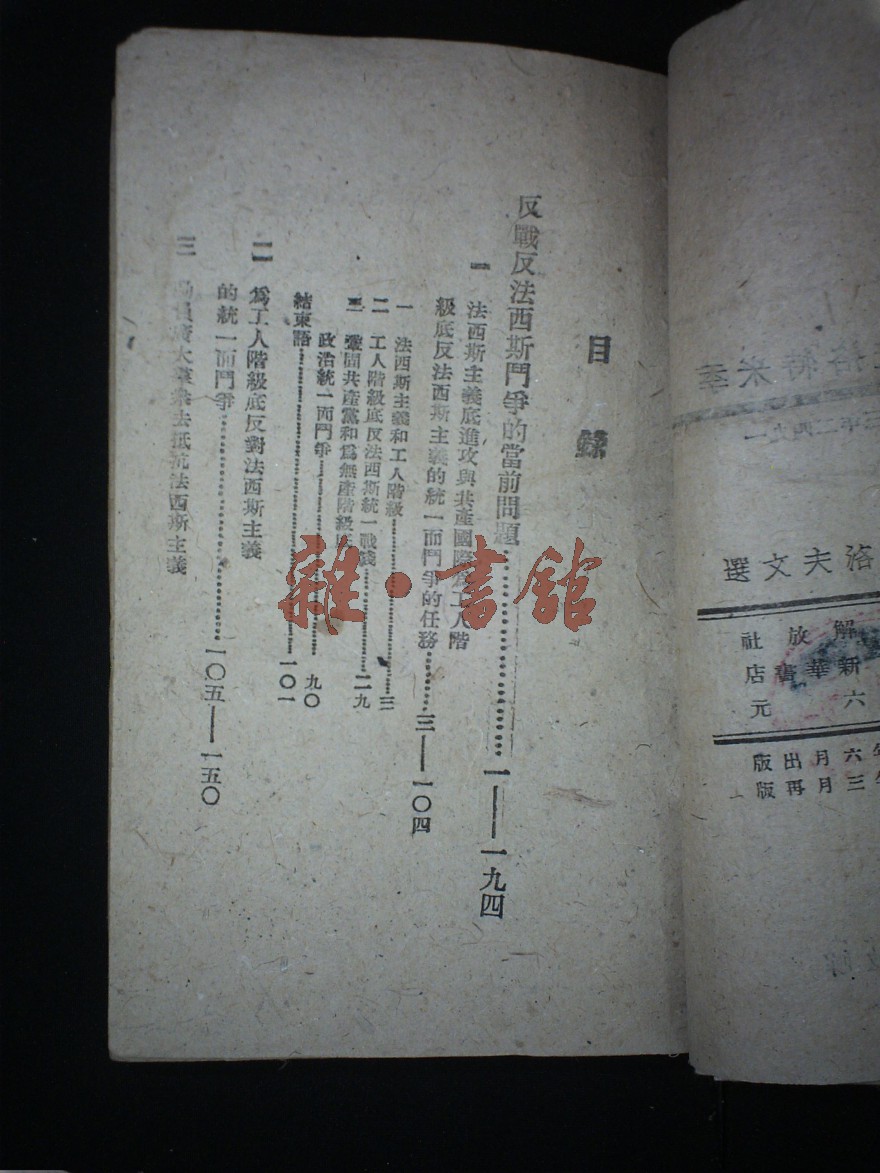 目錄
反戰反法西斯鬥爭的當前問題………………一——一九四
一 法西斯主義底進攻與共產國際爲工人階
級底反法西斯主義的統一而鬥爭的任務………三——一〇四
一 法西斯主義和工人階級………………三
二 工人階級底反法西斯統一戰綫………………二九
三 鞏固共產黨和爲無產階級底
政治統一而鬥爭………………九〇
結束語………………一〇一
二 爲工人階級底反對法西斯主義
的統一而鬥爭………………一〇五——一五〇
三 動員廣大羣衆去抵抗法西斯主義
雜·書館
季米特洛
洛夫文選
解放社
新華書店
六元
六月出版
三月再版